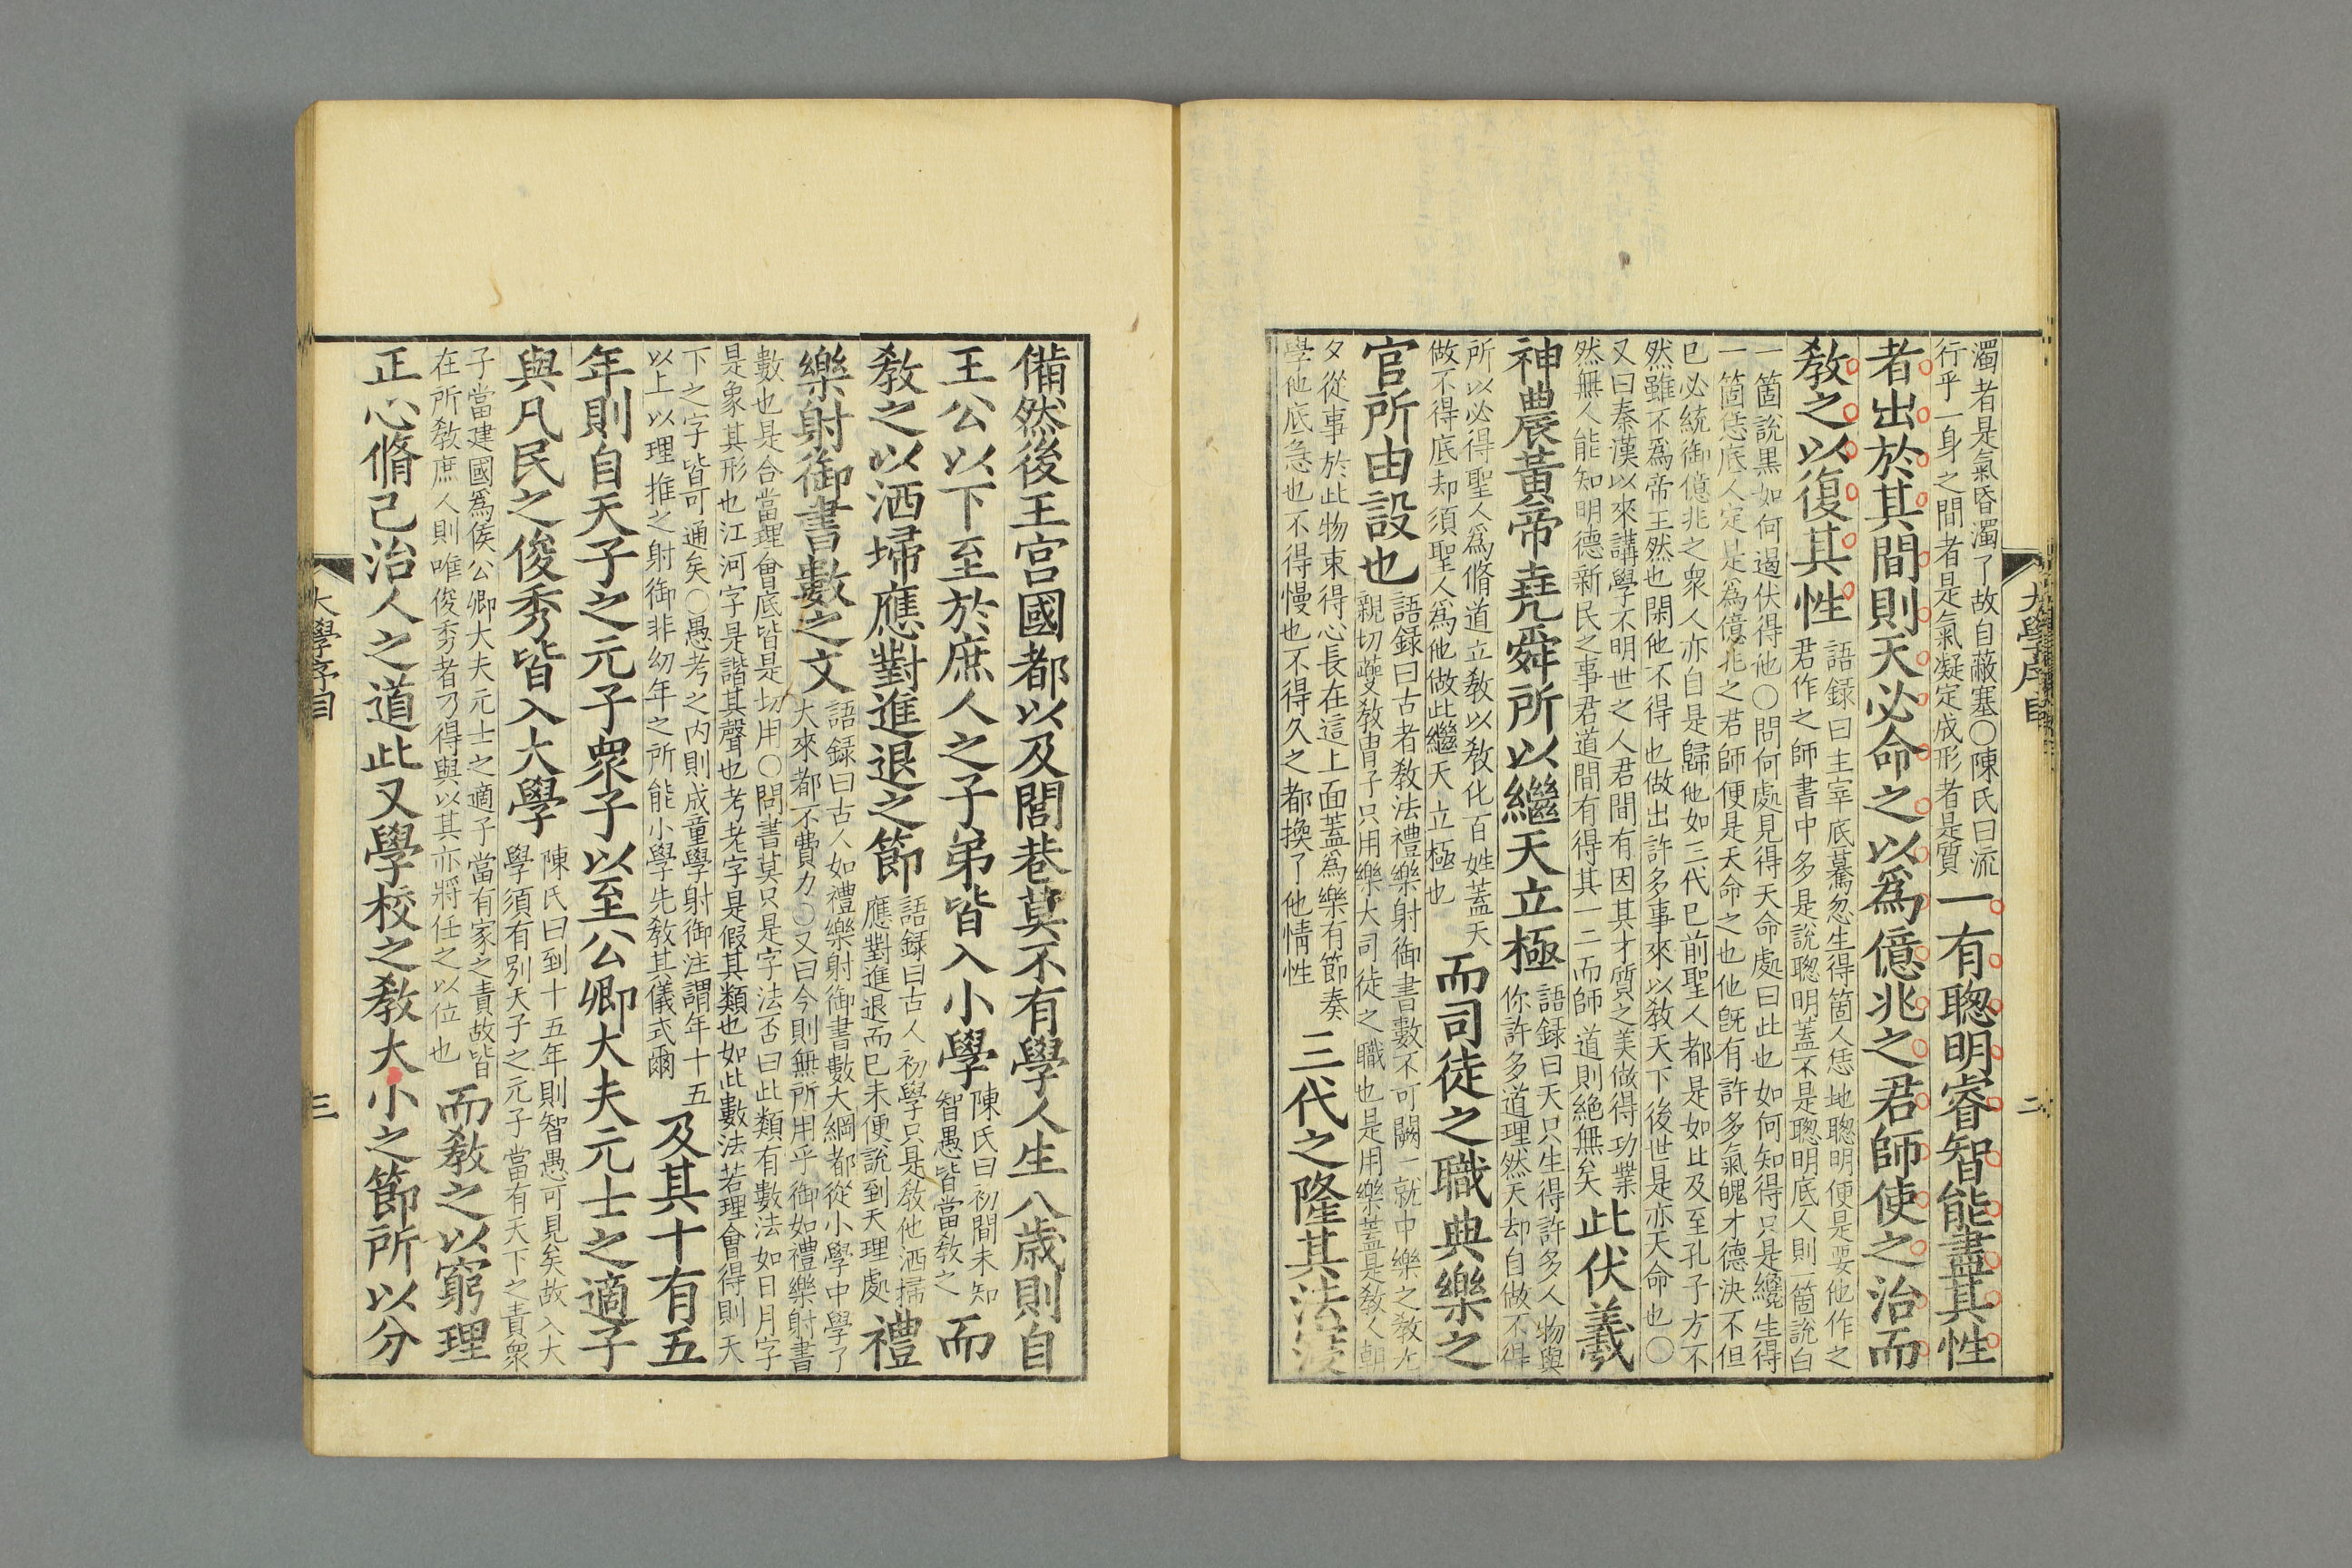 大學序目
二
濁者是氣昏濁了故自蔽塞〇陳氏曰流
行乎一身之間者是氣凝定成形者是質
一有聰明睿智能盡其性
者出於其間則天必命之以爲億兆之君師使之治而
敎之以復其性
語録曰主宰底驀忽生得箇人恁地聰明便是要他作之
君作之師書中多是說聰明蓋不是聰明底人則一箇說白
一箇說黑如何遏伏得他〇問何處見得天命處曰此也如何知得只是纔生得
一箇恁底人定是爲億兆之君師便是天命之也他旣有許多氣魄才德決不但
已必統御億兆之衆人亦自是歸他如三代已前聖人都是如此及至孔子方不
然雖不爲帝王然也閑他不得也做出許多事來以敎天下後世是亦天命也〇
又曰秦漢以來講學不明世之人君間有因其才質之美做得功業
然無人能知明德新民之事君道間有得其一二而師道則絶無矣
此伏羲
神農黃帝堯舜所以繼天立極
語録曰天只生得許多人物與
你許多道理然天却自做不得
所以必得聖人爲脩道立敎以敎化百姓蓋天
做不得底却須聖人爲他做此繼天立極也
而司徒之職典樂之
官所由設也
語録曰古者敎法禮樂射御書數不可闕一就中樂之敎尤
親切夔敎冑子只用樂大司徒之職也是用樂蓋是敎人朝
夕從事於此物束得心長在這上面蓋爲樂有節奏
學他底急也不得慢也不得久之都換了他情性
三代之隆其法寖
備然後王宮國都以及閭巷莫不有學人生八歲則自
王公以下至於庶人之子弟皆入小學
陳氏曰初間未知
智愚皆當敎之
而
敎之以洒埽應對進退之節
語録曰古人初學只是敎他洒掃
應對進退而已未便說到天理處
禮
樂射御書數之文
語録曰古人如禮樂射御書數大綱都從小學中學了
大來都不費力〇又曰今則無所用乎御如禮樂射書
數也是合當理會底皆是切用〇問書莫只是字法否曰此類有數法如日月字
是象其形也江河字是諧其聲也考老字是假其類也如此數法若理會得則天
下之字皆可通矣〇愚考之内則成童學射御注謂年十五
以上以理推之射御非幼年之所能小學先敎其儀式爾
及其十有五
年則自天子之元子衆子以至公卿大夫元士之適子
與凡民之俊秀皆入大學
陳氏曰到十五年則智愚可見矣故入大
學須有別天子之元子當有天下之責衆
子當建國爲侯公卿大夫元士之適子當有家之責故皆
在所敎庶人則唯俊秀者乃得與以其亦將任之以位也
而敎之以窮理
正心脩己治人之道此又學校之敎大小之節所以分
大學序目
三